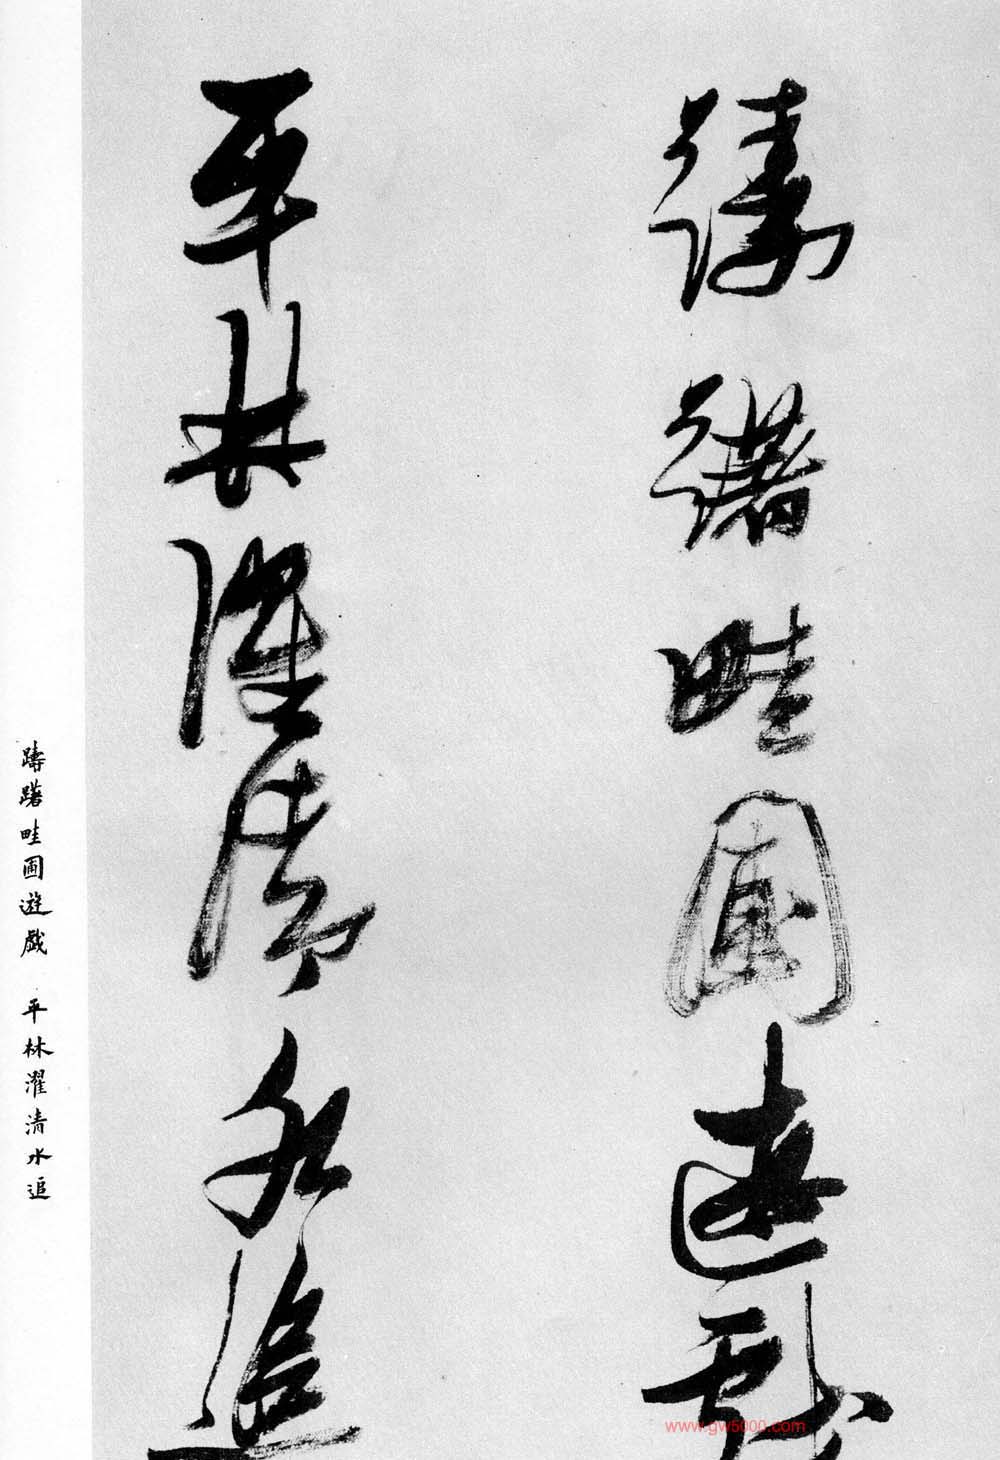 躊躇畦圃遊戲
平林濯清水追
躊躇畦圃遊戲 平林濯清水追
www.gw5000.com